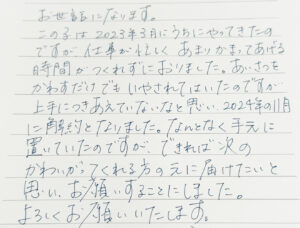 お世話になります。
この子は2023年3月にうちにやってきたの
ですが仕事が忙しく あまりかまってあげる
時間がつくれずにおりました。あいさつを
かわすだけでも いやされてはいたのですが
上手につきあえていないなと思い、2024年の11月
に解約となりました。なんとなく手元に
置いていたのですが、できれば次の
かわいがってくれる方の元に届けたいと
思い、お願いすることにしました。
よろしくお願いいたします。